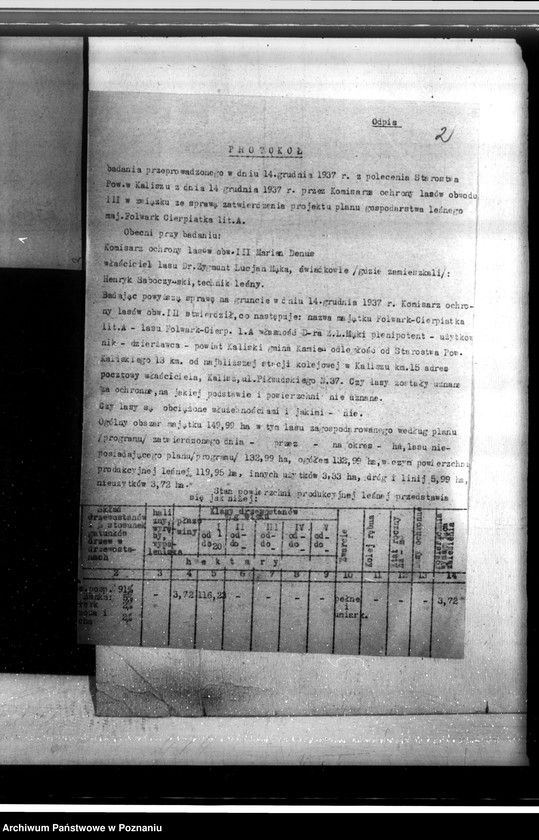 Odpis
2
PROTOKÓŁ
badania przeprowadzonego w dniu 14.grudnia 1937 r. z polecenia Starostwa
Pow.w Kaliszu z dnia 14 grudnia 1937 r. przez Komisarza ochrony lasów obwodu
III w związku ze sprawą zatwierdzenia projektu planu gospodarstwa leśnego
maj.Folwark Cierpiatka lit.A.
Obecni przy badaniu:
Komisarz ochrony lasów obw.III Marian Denus
właściciel lasu Dr.Zygmunt Lucjan Mąka, świadkowie /gdzie zamieszkali/:
Henryk Saboczyński, technik leśny.
Badając powyższą sprawę na gruncie w dniu 14.grudnia 1937 r. Komisarz ochro-
ny lasów obw.III stwierdził, co następuje: nazwa majątku Folwark-Cierpiatka
lit.A - lasu Folwark-Cierp. l.A własność D-ra Z.L.Mąki plenipotent - użytkow
nik - dzierżawca - powiat Kaliski gmina Kamień odległość od Starostwa Pow.
Kaliskiego 13 km. od najbliższej stacji kolejowej w Kaliszu km.15 adres
pocztowy właściciela, Kalisz, ul.Piłsudskiego N.37. Czy lasy zostały uznane
za ochronne, na jakiej podstawie i powierzchni nie uznane.
Czy lasy są obciążone służebnościami i jakimi - nie.
Ogólny obszar majątku 149,99 ha w tym lasu zagospodarowanego według planu
/programu/ zatwierdzonego dnia - przez - na okres - ha, lasu nie-
posiadającego planu/programu/ 132,99 ha, ogółem 132,99 ha, w czym powierzchni
produkcyjnej leśnej 119,95 ha, innych użytków 3,33 ha, dróg i linij 5,99 ha,
nieużytków 3,72 ha.-
Stan powierzchni produkcyjnej leśnej przedstawia
się jak niżej:
skład drzewostanów - stosunek gatunków drzew w drzewosta-nach
hali zny, wyrę by, wypa-leniska
płazo winy
Klasy drzewostanów
wieku
I od 1 do 20
II od- do-
III od- do-
IV od- do-
V od- do-
Zwarcie
Kolej rębna
Etat roczny
ochronne
hektary
2 3 4 5 6 7 8 9 10 11 12 13 14
- 3,72 116,23 - - - - pełne i umiark. - - - 3,72
Archiwum Państwowe w Poznaniu